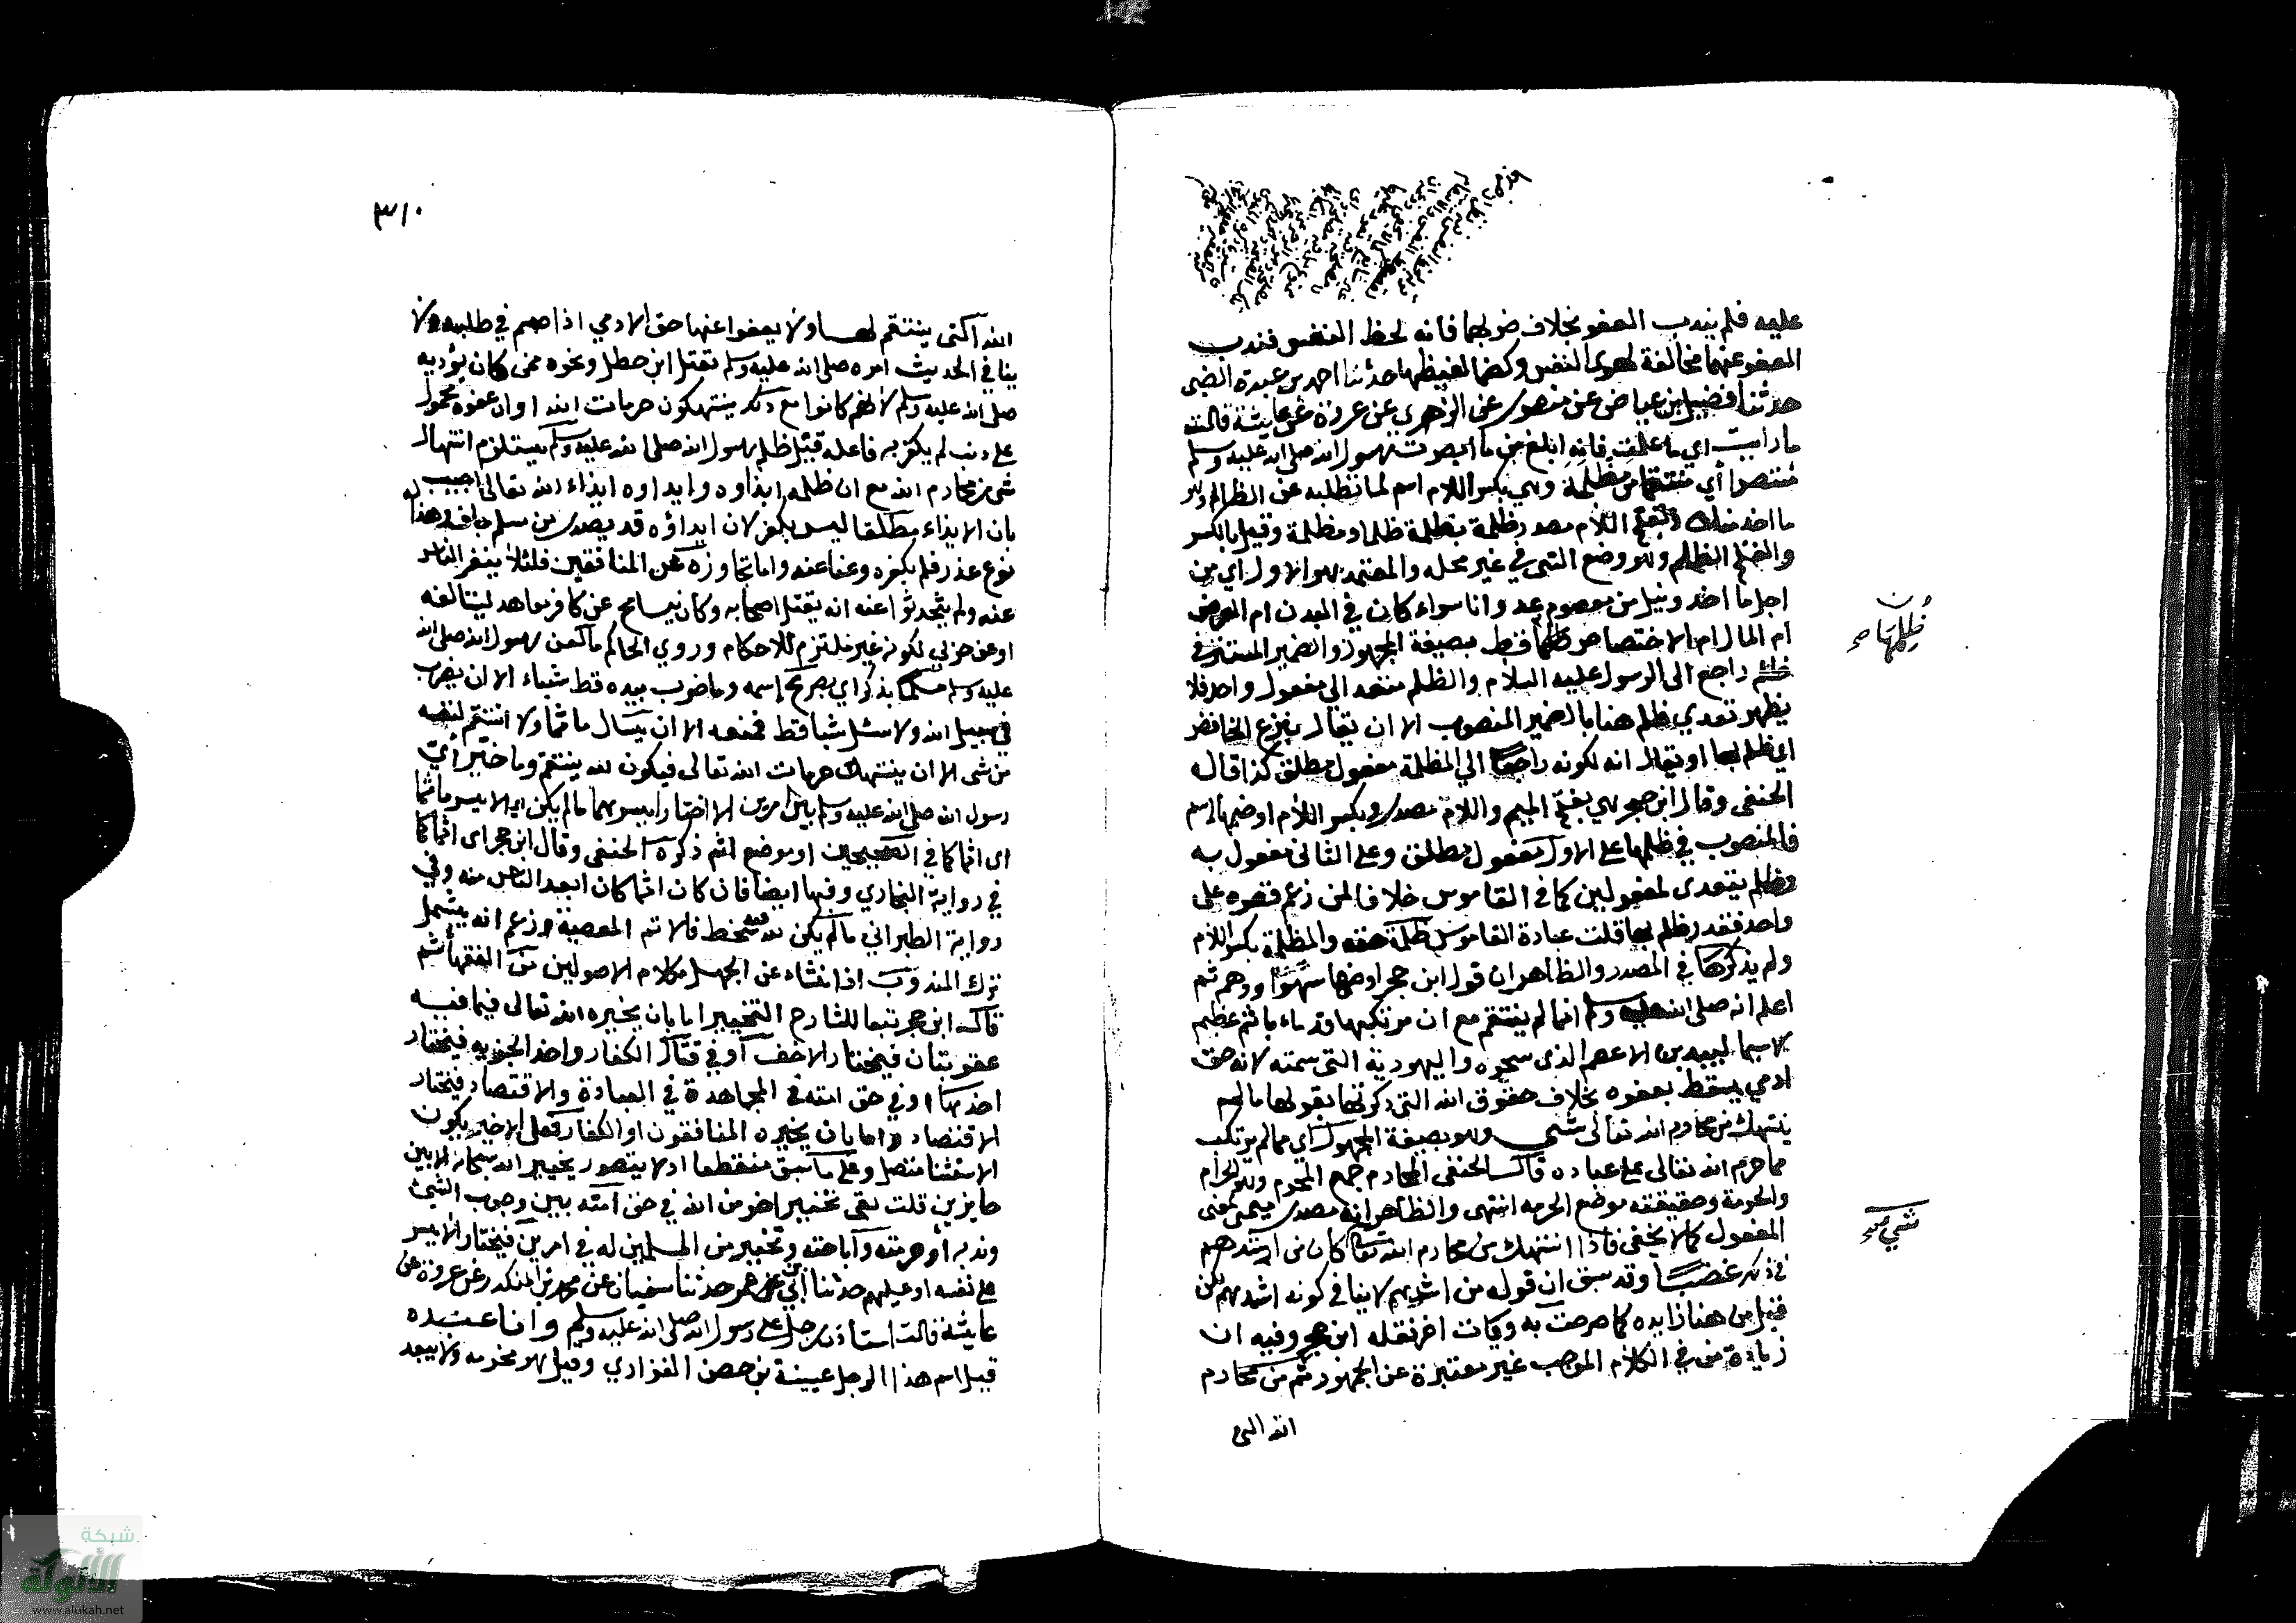 عليه فلم يندب العفو بخلاف ضربهما فانه لحظ النفس فندب
العفو عنهما مخالفة لهوى النفس وكضما لغيظها حدثنا احمد بن عبدة الضبى
حدثنا فضيل بن عياض عن منصور عن الزهري عن عروة عن عايشة قالت
ما رايت اي ما علمت فانه ابلغ من ما ابصرت رسول الله صلى الله عليه وسلم
منتصرا أي منتقما من مظلمة وهي بكسر اللام اسم لما تطلبه عن الظالم وهو
ما اخذ منك وبفتح اللام مصدر ظلمه يظلمه ظلما ومظلمة وقيل بالكسر
والفتح الظلم وهو وضع الشى في غير محله والمعتمد هو الاول اي من
اجل ما اخذ ونيل من معصوم عدوانا سواء كان في البدن ام العرض
ام المال ام الاختصاص ظلمها قط بصيغة المجهول والضمير المستتر في
ظلم راجع الى الرسول عليه السلام والظلم متعد الى مفعول واحد فلا
يظهر تعدي ظلم هنا بالضمير المنصوب الا ان يقال بنزع الخافض
اي ظلم بها او يقال انه لكونه راجعا الي المظلمة مفعول مطلق كذا قال
الحنفى وقال ابن حجر هي بفتح الميم واللام مصدر وبكسر اللام او ضمها اسم
فالمنصوب في ظلمها على الاول مفعول مطلق وعلى الثانى مفعول به
وظلم يتعدى لمفعولين كما في القاموس خلافا لمن زعم قصره على
واحد فقدر ظلم بها قلت عبادة القاموس ظلمه حقه والمظلمة بكسر اللام
ولم يذكرها في المصدر والظاهر ان قول ابن حجر او ضمها سهو ووهم ثم
اعلم انه صلى الله عليه وسلم انما لم ينتقم مع ان مرتكبها قد باء باثم عظيم
لا سيما لبيد بن الاعصم الذى سحره واليهودية التى سمته لانه حق
ادمي يسقط بعفوه بخلاف حقوق الله التى ذكرتها بقولها ما لم
ينتهك من محارم الله تعالى شى وهو بصيغة المجهول اي مما لم يرتكب
مما حرم الله تعالى على عباده قال الحنفى المحارم جمع المحرم وهو الحرام
والحرمة وحقيقته موضع الحرمه انتهى والظاهر انه مصدر ميمى بمعنى
المفعول كما لا يخفى فاذا انتهك من محارم الله تعالى كان من اشدهم
في ذلك غضبا وقد سبق ان قوله من اشدهم لا ينافي كونه اشدهم لكن
قيل من هنا زايده كما صرحت به رواية اخر نقله ابن حجر وفيه ان
زيادة من في الكلام الموجب غير معتبرة عن الجمهور ثم من محارم
الله التى
ظلمها صح
شى صح
٣١٠
الله التى ينتقم لها ولا يعفوا عنها حق الادمي اذا صمم في طلبه ولا
ينافي الحديث امره صلى الله عليه وسلم بقتل ابن خطل ونحوه ممن كان يؤذيه
صلى الله عليه وسلم لانهم كانوا مع ذلك ينتهكون حرمات الله او ان عفوه محمول
على ذنب لم يكفر به فاعله قيل ظلم رسول الله صلى الله عليه وسلم يستلزم انتهاك
شى من محارم الله مع ان ظلمه ايذاؤه وايذاوه ايذاء الله تعالى اجيب
بان الايذاء مطلقا ليس بكفر لان ايذاؤه قد يصدر من مسلم جلف وهذا له
نوع عذر فلم يكفره وعفا عنه واما تجاوزه عن المنافقين فلئلا ينفر الناس
عنه ولم يتحدثوا عنه انه يقتل اصحابه وكان يسامح عن كافر معاهد ليتالفه
او عن حزبي لكونه غير ملتزم للاحكام وروي الحاكم ما لعن رسول الله صلى الله
عليه وسلم مسلما بذكر اي بصريح اسمه وما ضرب بيده قط شياء الا ان يضرب
في سبيل الله ولا سئل شيا قط فمنعه الا ان يسال ماثما ولا انتقم لنفسه
من شى الا ان ينتهك حرمات الله تعالى فيكون لله ينتقم وما خير اي
رسول الله صلى الله عليه وسلم بين امرين الا اختار ايسرهما ما لم يكن اي الايسر ماثما
اى اثما كما في الصحيحين او موضع اثم ذكره الحنفى وقال ابن حجر اى اثما كما
في رواية البخاري وفيها ايضا فان كان اثما كان ابعد الناس منه وفي
رواية الطبراني ما لم يكن لله فيه سخط فالاثم المعصية وزعم انه يشمل
ترك المندوب اذا نشاء عن الجهل بكلام الاصوليين من الفقهاء ثم
قال ابن حجر تبعا للشارح التخيير اما بان يخيره الله تعالى فيما فيه
عقوبتان فيختار الاخف او في قتال الكفار واخذ الجزيه فيختار
اخذها او في حق امته في المجاهدة في العبادة والاقتصاد فيختار
الاقتصاد واما بان يخيره المنافقون او الكفار فعلى الاخير يكون
الاستثنا متصل وعلى ما سبق منقطعا اذ لا يتصور تخيير الله سبحانه الا بين
جايزين قلت بقى تخيير اخر من الله في حق امته بين وجوب الشئ
وندبه أو حرمته واباحته وتخيير من المسلمين له في امرين فيختار الايسر
على نفسه او عليهم حدثنا ابن ابي عمر حدثنا سفيان عن محمد بن المنكدر عن عروة عن
عايشة قالت استاذن رجل على رسول الله صلى الله عليه وسلم وانا عنده
قيل اسم هذا الرجل عيينة بن حصن الفزاري وقيل هو مخرمه ولا يبعد
شبكة
الألوكة
www.alukah.net